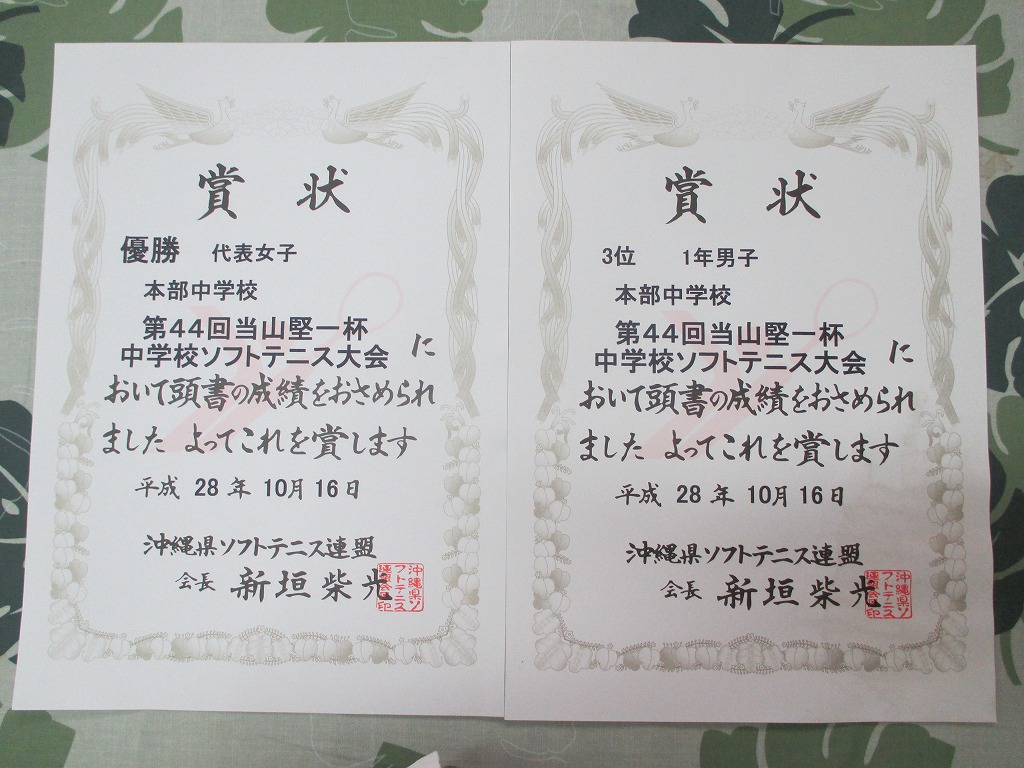 賞 状
優勝 代表女子
本部中学校
第44回当山堅一杯
中学校ソフトテニス大会 に
おいて頭書の成績をおさめられ
ました よってこれを賞します
平成 28 年 10月 16日
沖縄県ソフトテニス連盟
会長 新垣柴光
沖縄県ソ
フトテニス
連盟会長印
賞 状
3位 1年男子
本部中学校
第44回当山堅一杯
中学校ソフトテニス大会 に
おいて頭書の成績をおさめられ
ました よってこれを賞します
平成 28 年 10月 16日
沖縄県ソフトテニス連盟
会長 新垣柴光
沖縄県ソ
フトテニス
連盟会長印